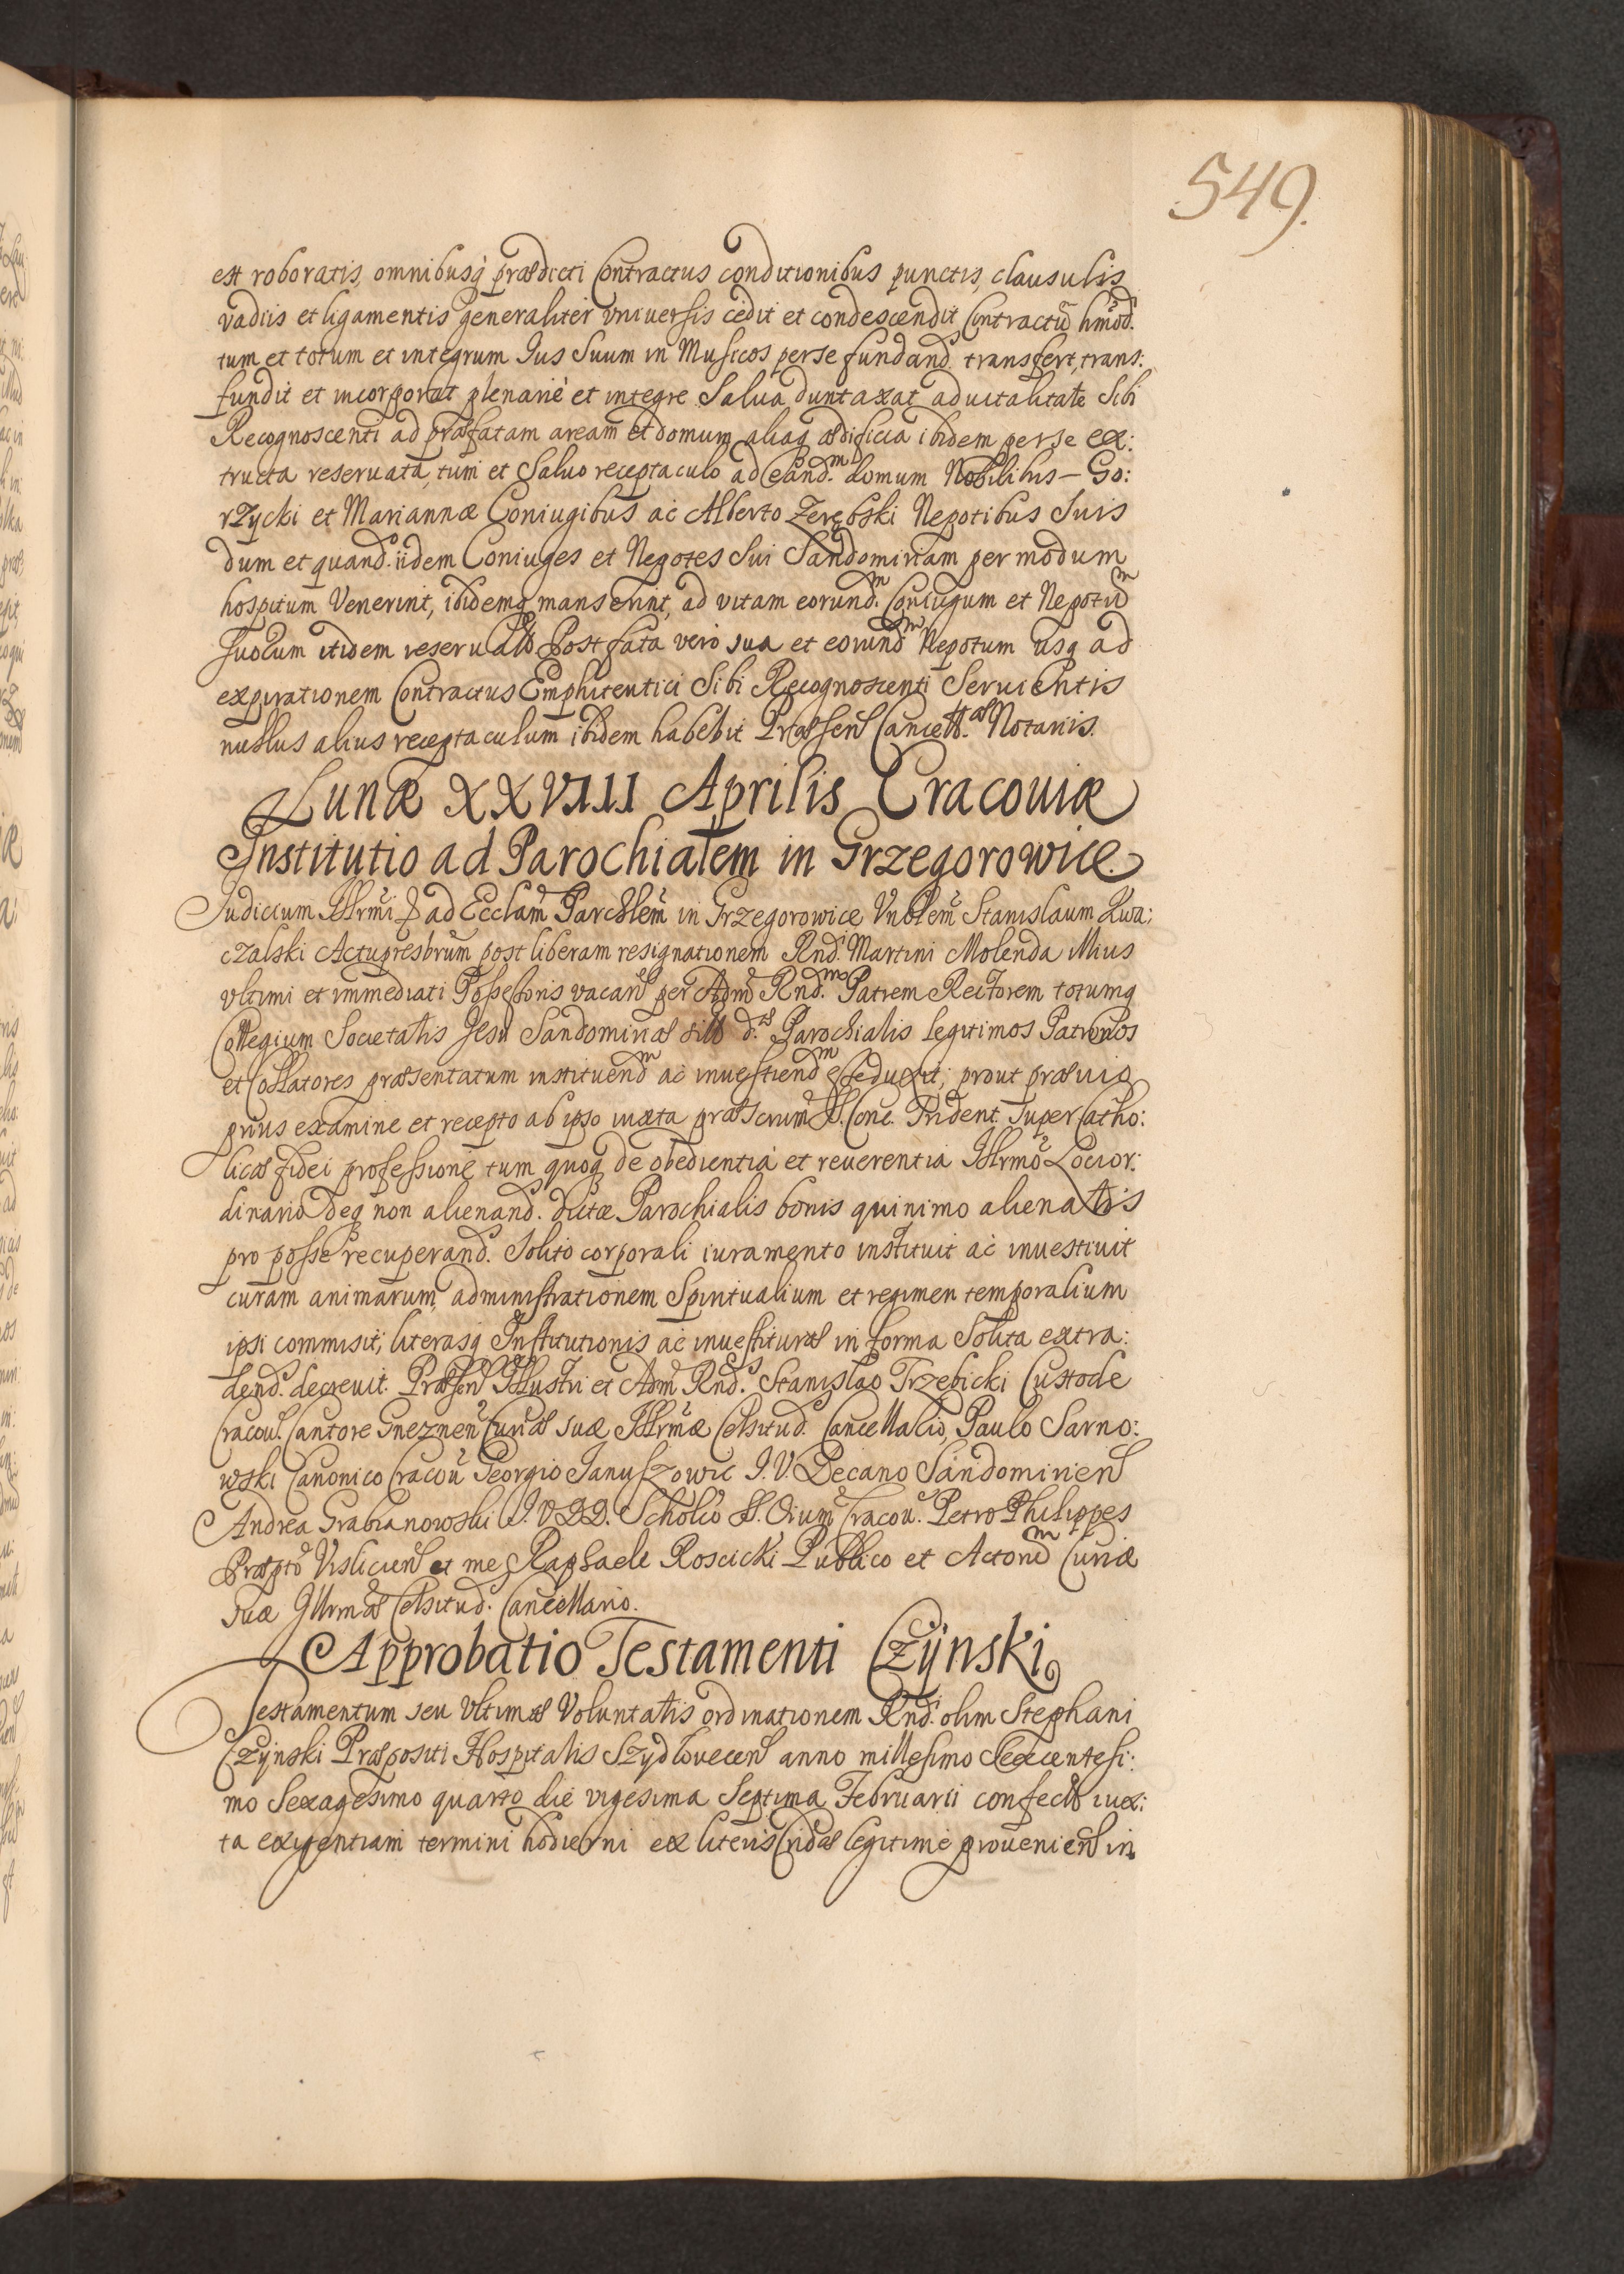 549.
est roboratis, omnibusq́ prædicti Contractus conditionibus punctis, clausulis
vadiis et ligamentis generaliter vniuersis cedit et condescendit Contractũ hmõd.
tum et totum et integrum Ius Suum in Musicos per se fundand. transfert, trans:
fundit et incorporat plenarie et integre Salua duntaxat aduitalitate Sibi
Recognoscenti ad præfatam aream et domum aliaq ædificia ibidem per se ex:
tructa reseruata, tum et Saluo receptaculo ad eand.m domum Nobilibus – Go:
rzycki et Mariannæ Coniugibus ac Alberto Zerębski Nepotibus Suis
dum et quando iidem Coniuges et Nepotes Sui Sandomiriam per modum
hospitum Venerint, ibidemq manserint, ad vitam eorund.m Coniugum et Nepotũ
Suorum itidem reseruato. Post fata vero sua et eorundm Nepotum usq ad
expirationem Contractus Emphiteutici Sibi Recognoscenti Seruientis
nullus alius receptaculum ibidem habebit Præsen Cancell.æ Notariis.
Lunæ XXVIII Aprilis Cracouiæ
Institutio ad Parochialem in Grzegorowice
Judicium Illrmi ad Ecclam Parchlem in Grzegorowice Vnblem Stanislaum Kwa:
czalski Actupresbrum post liberam resignationem Rndi Martini Molenda illius
vltimi et immediati Possessoris vacan per Adm Rnd.m Patrem Rectorem totumq
Collegium Societatis Jesu Sandomiriæ d. Parochialis legitimos Patronos
et Collatores præsentatum instituendm ac inuestiendm esse duxit; prout præuio
prius examine et recepto ab ipso iuxta præscrium S. Conc. Trident. Super Catho:
licæ fidei professione tum quoq de obedientia et reuerentia Illrmo Loci or:
dinario deq non alienand. dictæ Parochialis bonis quinimo alienatis
pro posse recuperand. Solito corporali iuramento instituit ac inuestiuit
curam animarum, administrationem Spiritualium et regimen temporalium
ipsi commisit; literasq Institutionis ac inuestituræ in forma Solita extra:
dend. decreuit. Præsen Illustri et Adm Rnd. Stanislao Trzebicki Custode
Cracou. Cantore Gneznen Curiæ suæ Illrmæ Celsitud. Cancellario, Paulo Sarno:
wski Canonico Cracou Georgio Januszowic I. V. D. Decano Sandomirien
Andrea Grabianowski I. V. DD. Scholco SS. Oium Cracou. Petro Philippes
Præpto Visliciens et me Raphaele Roscicki Publico et Actorum Curiæ
suæ Illrmæ Celsitud. Cancellario.
Approbatio Testamenti Czÿnski
Testamentum seu Vltimæ Voluntatis ordinationem Rndi olim Stephani
Czÿnski Præpositi Hospitalis Szydlovecen anno millesimo Sexcentesi:
mo Sexagesimo quarto die vigesima Septima Februarii confecto iux:
ta exigentiam termini hodierni ex literis Cridæ legitime prouenien in